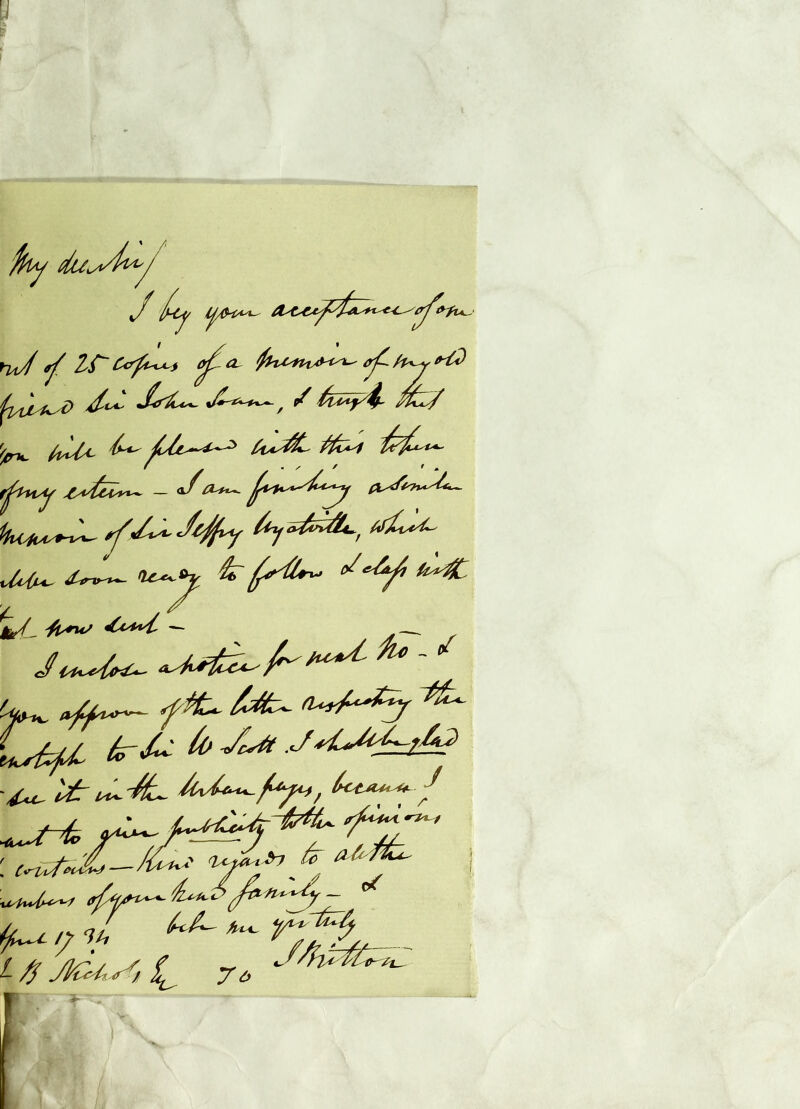 My dear Sir/
I beg your acceptance of one
out of 25 copies of a Memoir of my old
friend Sir John Soane, & trust that
you will be pleased with this token
of my esteem — I am finishing a similar
Memoir of Sir Jeffry Wyatville, which
will be soon ready to follow & class with
that now sent —
I inclose a notice for next No - &
you approve of the letter respecting the
cenotaph to Sir W Scott . I shall be glad
see it in the Urban pages, because I
want to give publicity to the opinions
contains — Kind regards to all the
members of your kind family — &
April 17 bele me yrs truly
B Nichols Esq JBritton